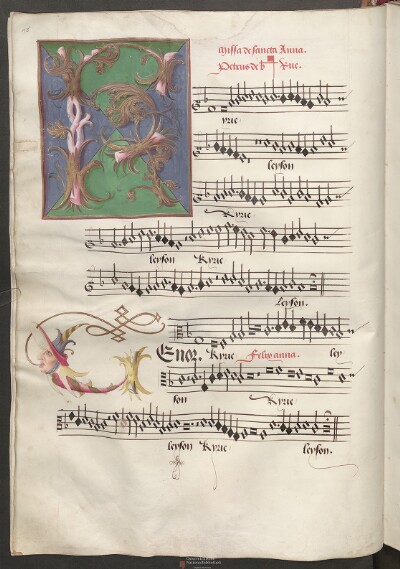 Missa de sancta Anna.
Petrus de Rue.
yrie
leyson
Kyrie
leyson Kyrie
Leyson.
Enor. Kyrie Felix anna. ley
son Kyrie
leyson Kyrie leyson.